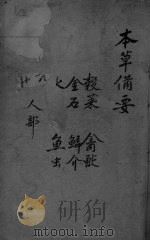 本草備要
穀菜 禽獸
金石 鱗介
七 魚虫
八
人部